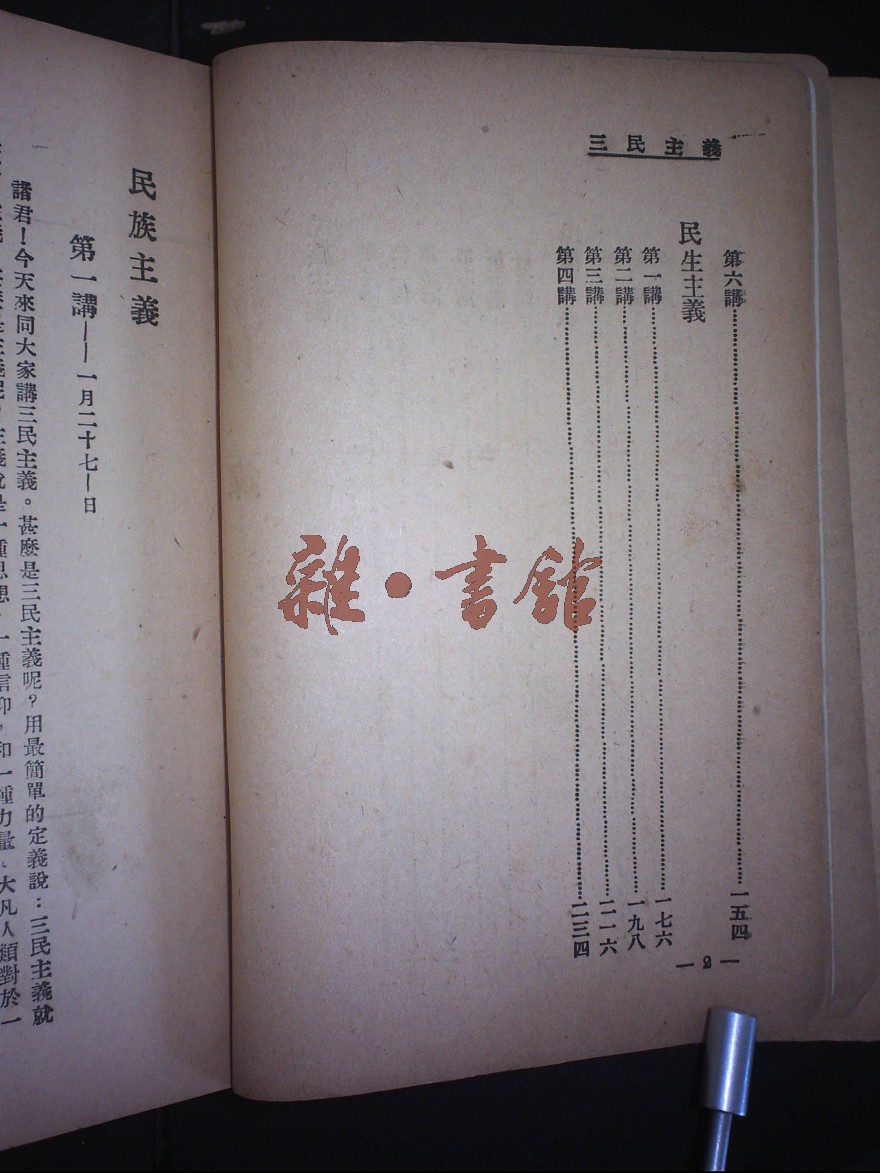 三民主義
第六講……一五四
民生主義
第一講……一七六
第二講……一九八
第三講……二一六
第四講……二三四
— 2 —
雜·書館
民族主義
第一講——一月二十七日
諸君!今天來同大家講三民主義。甚麼是三民主義呢?用最簡單的定義說:三民主義就
主義就是一種思想,一種信仰,和一種力量。大凡人類對於一